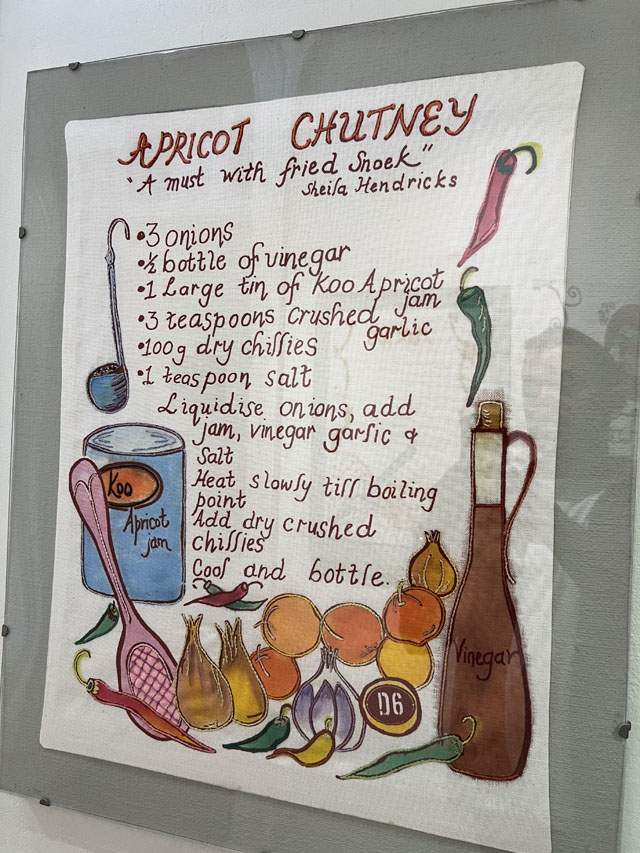 APRICOT CHUTNEY
"A must with fried Snoek"
Sheila Hendricks
•3 onions
•½ bottle of vinegar
•1 Large tin of Koo Apricot
jam
•3 teaspoons crushed
garlic
•100g dry chillies
•1 teaspoon salt
Liquidise onions, add
jam, vinegar garlic &
Salt
Heat slowly till boiling
point
Add dry crushed
chillies
Cool and bottle.
Koo
Apricot
jam
Vinegar
D6